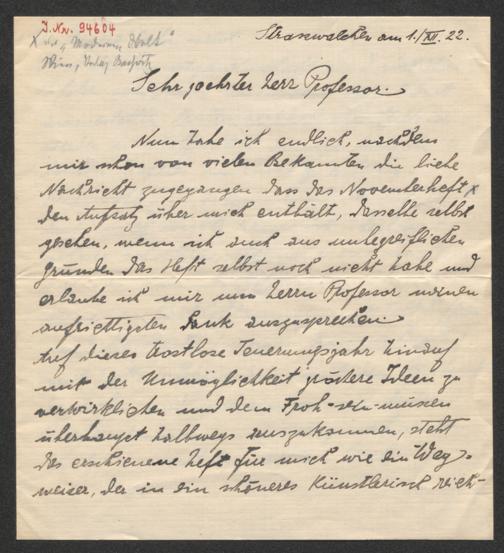 I.Nr. 94604
x der „Modernen Welt"
Wien, Verlag
Strasswalchen am 1./XII. 22.
Sehr geehrter Herr Professor.
Nun habe ich endlich, nachdem
mir schon von vielen Bekannten die liebe
Nachricht zugegangen dass das Novemberheft x
den Aufsatz über mich enthält, dasselbe selbst
gesehen, wenn ich auch aus unbegreiflichen
Gründen das Heft selbst noch nicht habe und
erlaube ich mir nun Herrn Professor meinen
aufrichtigsten Dank auszusprechen.
Auf dieses trostlose Teuerungsjahr hinauf
mit der Unmöglichkeit grössere Ideen zu
verwirklichen und dem Froh-sein-müssen
überhaupt halbwegs auszukommen, steht
das erschienene Heft für mich wie ein Weg-
weiser, der in ein schöneres künstlerisch reich-